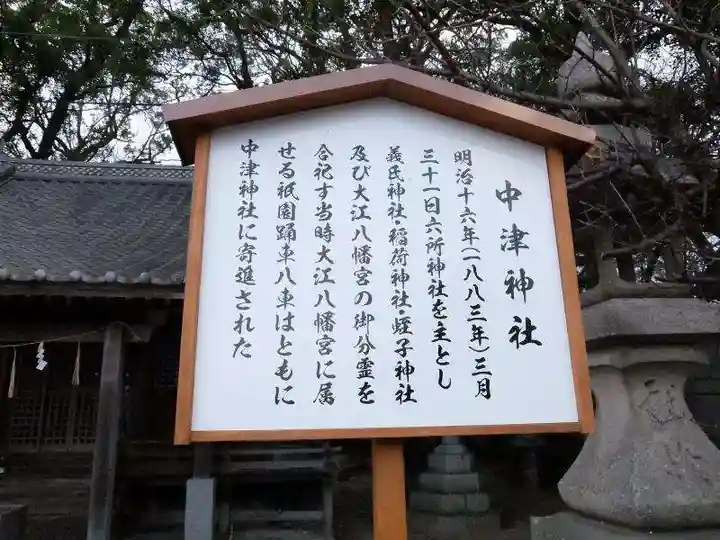 中津神社
明治十六年(一八八三年)三月
三十一日六所神社を主とし
義氏神社・稲荷神社・蛭子神社
及び大江八幡宮の御分霊を
合祀す当時大江八幡宮に属
せる祇園踊車八車はともに
中津神社に寄進された